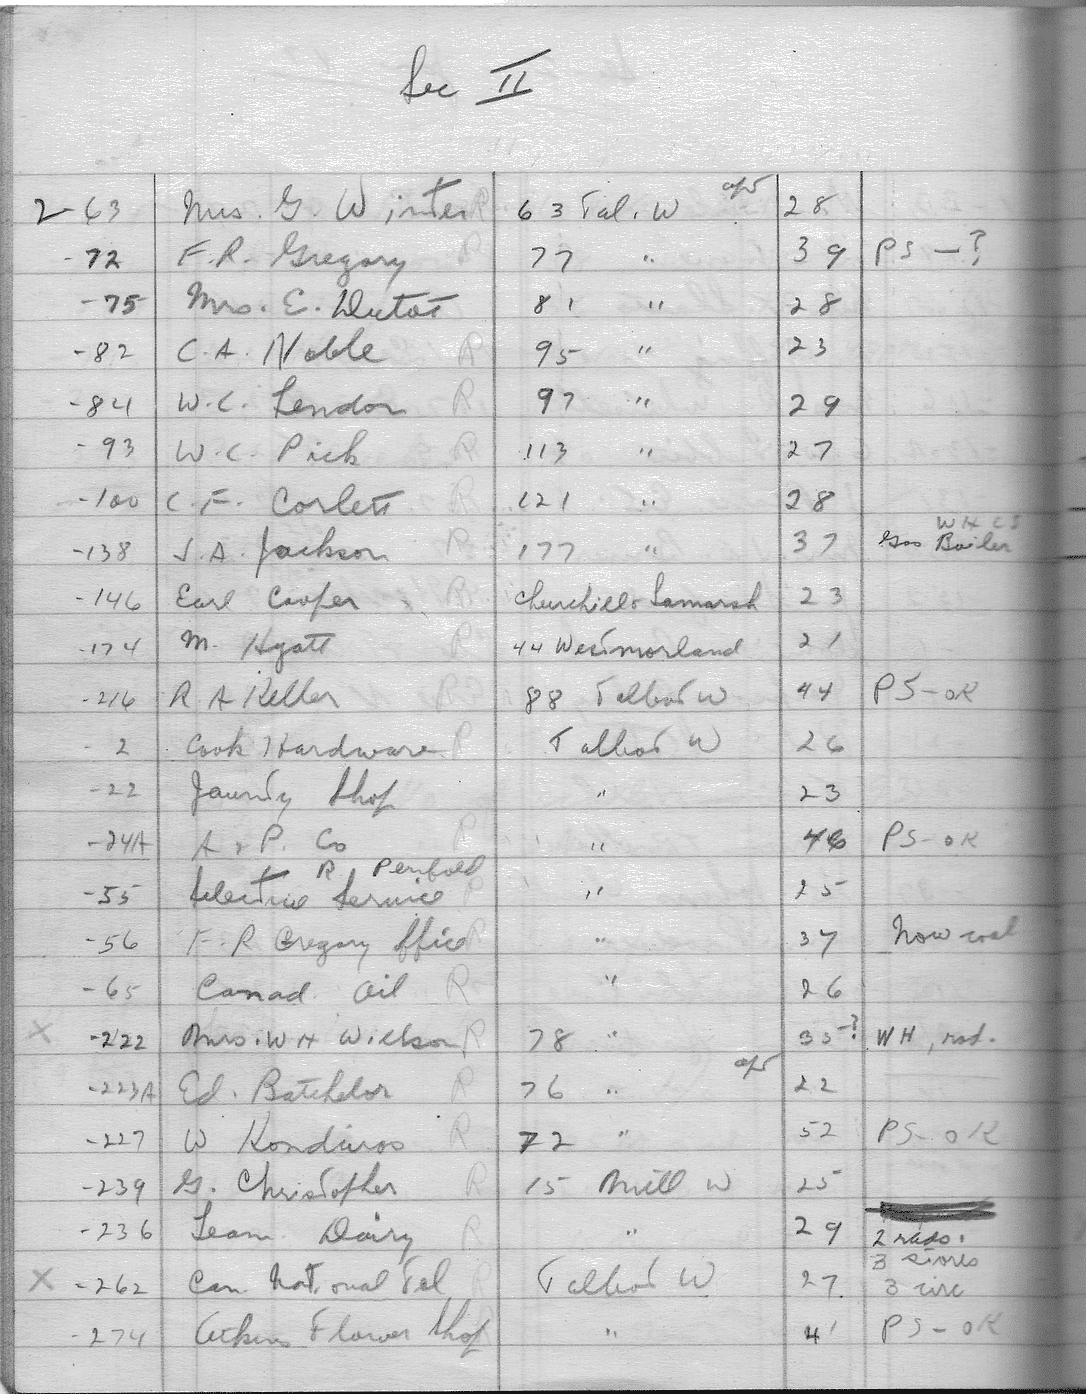 Sec II
2-63 Mrs. G. Winter R 63 Tal. W apt 28
-72 F.R. Gregory R 77 " 39 PS -?
-75 Mrs. E. Dutot 81 " 28
-82 C.A. Noble R 95 " 23
-84 W.C. Lendon R 97 " 29
-93 W.C. Pick R 113 " 27
-100 C.F. Corlett R 121 " 28
-138 J.A. Jackson R 177 " 37 Gas Boiler
-146 Earl Cooper R Churchill & Lamarsh 23
-174 M. Hyatt R 44 Westmorland 21
-216 R A Keller R 88 Talbot W 44 PS-OK
-2 Cook Hardware R Talbot W 26
-22 Jaunty Shop " 23
-24A A & P. Co R " 46 PS-OK
R Penfold
-55 Electric Service R " 25
-56 F.R Gregory Office R " 37 Now coal
-65 Canad. Oil R " 26
X -222 Mrs. W H Willson R 78 " 35-? WH, rad.
-223A Ed. Batchelor R 76 " apt 22
-227 W Kondiros R 72 " 52 PS-OK
-239 G. Christopher R 15 Mill W 25
-236 Leam. Dairy R " 29 2 rads.
3 stoves
X -262 Can. National Tel R Talbot W 27 3 circ
-274 Atkins Flower Shop R " 41 PS-OK